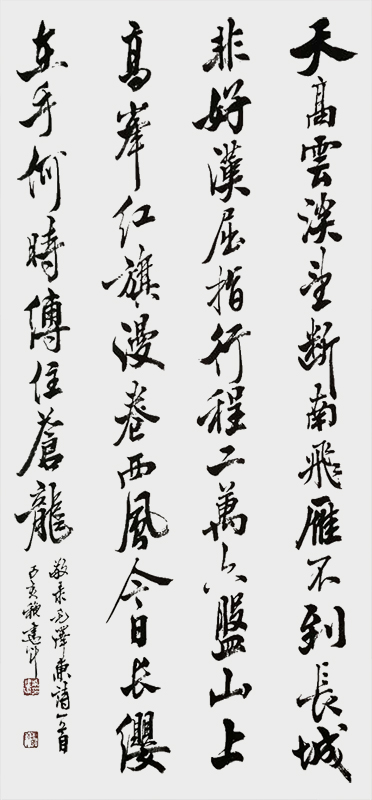 天高雲淡望斷南飛雁不到長城
非好漢屈指行程二萬六盤山上
高峯紅旗漫卷西風今日长纓
在手何時縛住蒼龍
敬录毛澤東詩一首
己亥秋建